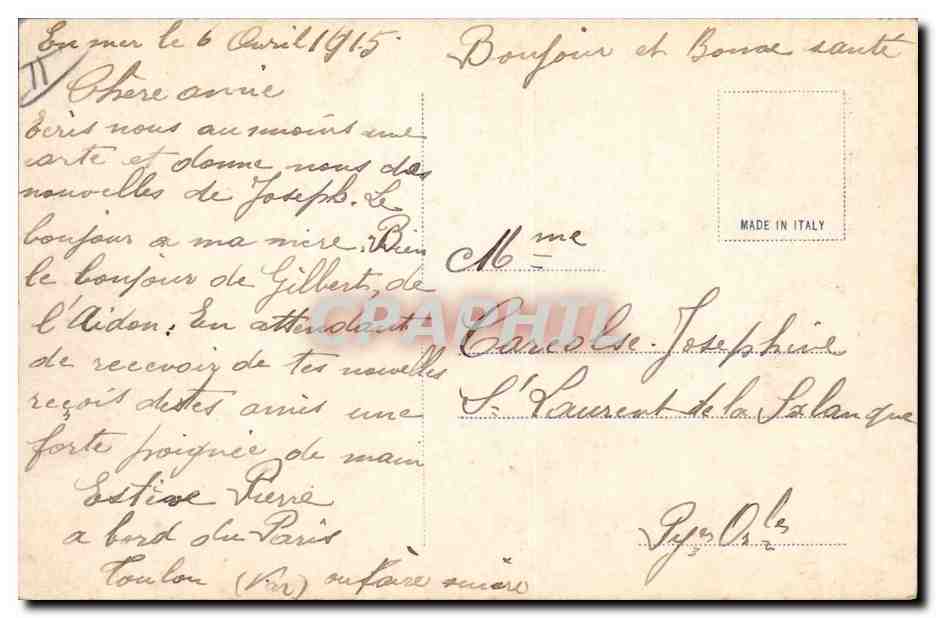 En mer le 6 Avril 1915
Bonjour et Bonne santé
Chère amie
Ecris nous au moins une
carte et donne nous des
nouvelles de Joseph. Le
bonjour a ma mère. Bien
le bonjour de Gilbert, de
l'Aidon. En attendant
de recevoir de tes nouvelles
reçois de tes amis une
forte poignée de main
Estève Pierre
a bord du Paris
Toulon (Var) ou faire suivre
MADE IN ITALY
Mme
Josephine
St Laurent de la Salanque
Pyes Orles
CPARHIL